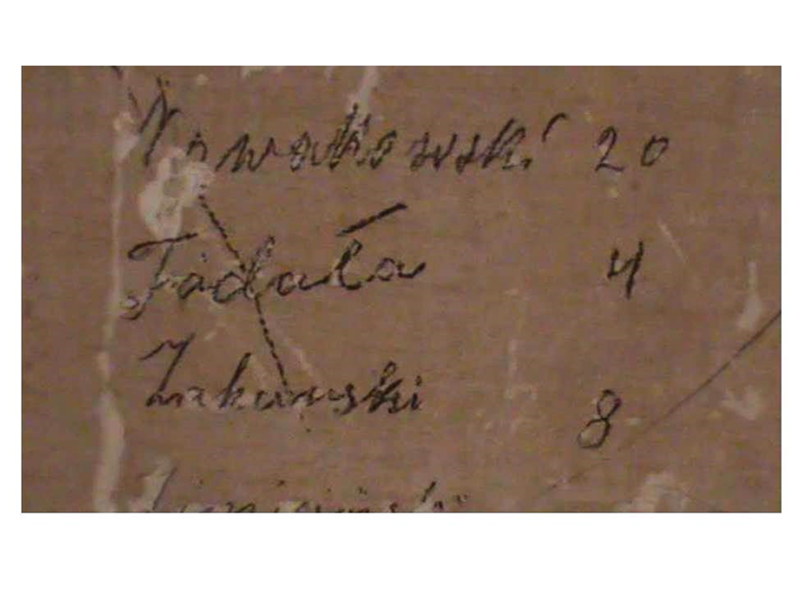 Nowakowski 20
Fadała 4
Żukowski 8